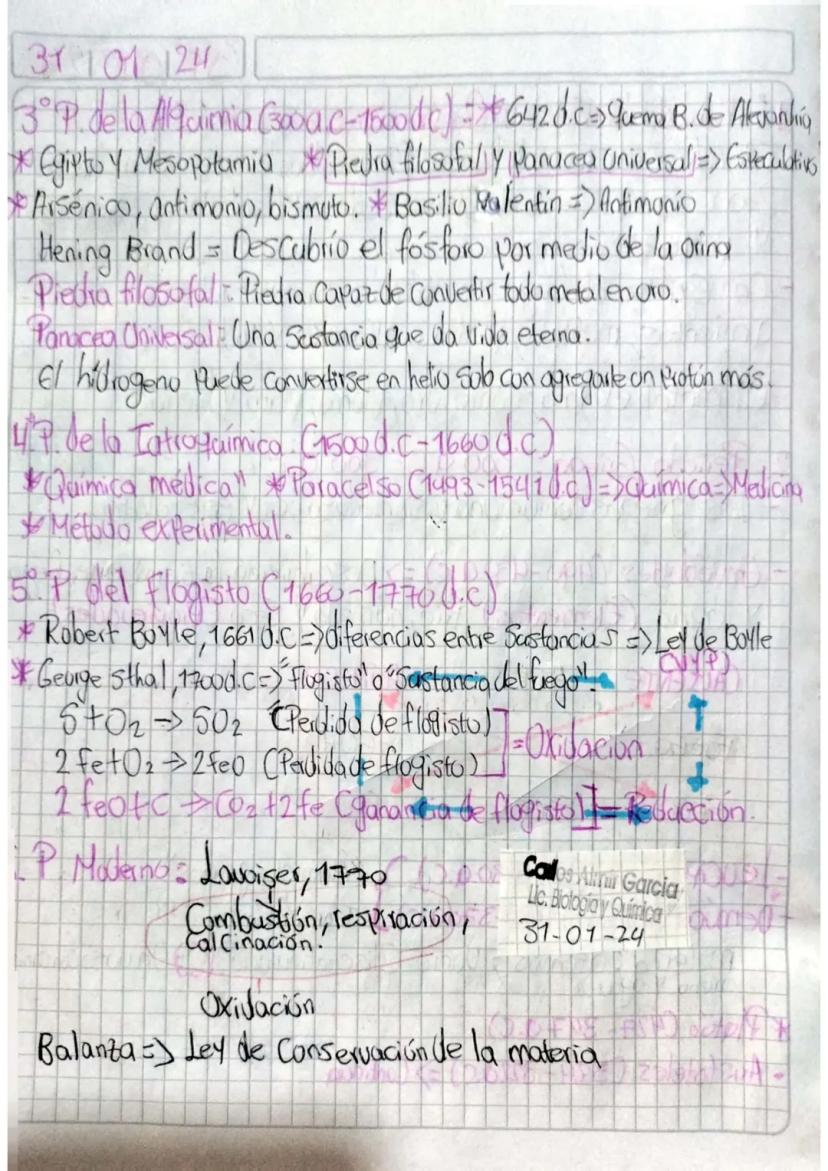 31 01 24
3° P. de la Alquimia (300a.c-1500d.c) => * 642 d.c => Quema B. de Alejandría
* Egipto y Mesopotamia * Piedra filosofal y Panacea Universal => Especulativo
* Arsénico, antimonio, bismuto. * Basilio Valentín => Antimonio
Hening Brand = Descubrio el fósforo por medio de la orina
Piedra filosofal: Piedra capaz de convertir todo metal en oro.
Panacea Universal: Una Sustancia que da vida eterna.
El hidrogeno puede convertirse en helio solo con agregarle un Protón más.
4° P. de la Iatroquímica (1500d.c-1660d.c)
* "Química médica" * Paracelso (1493-1541d.c) => Química => Medicina
* Método experimental.
5° P. del Flogisto (1660-1770d.c)
* Robert Boyle, 1661d.c => diferencias entre Sustancias => Ley de Boyle
(V y P)
* George Sthal, 1700d.c => "flogisto" o "Sustancia del fuego".
S + O2 -> SO2 (Perdida de flogisto)
2 fe + O2 -> 2 feO (Perdida de flogisto) ] = Oxidación
2 feO + C -> CO2 + 2 fe (ganancia de flogisto) ] = Reducción.
P. Moderno: Lavoiser, 1770
Combustión, respiración,
Calcinación.
Carlos Almir Garcia
Lic. Biología y Química
31-01-24
Oxidación
Balanza => Ley de Conservación de la materia